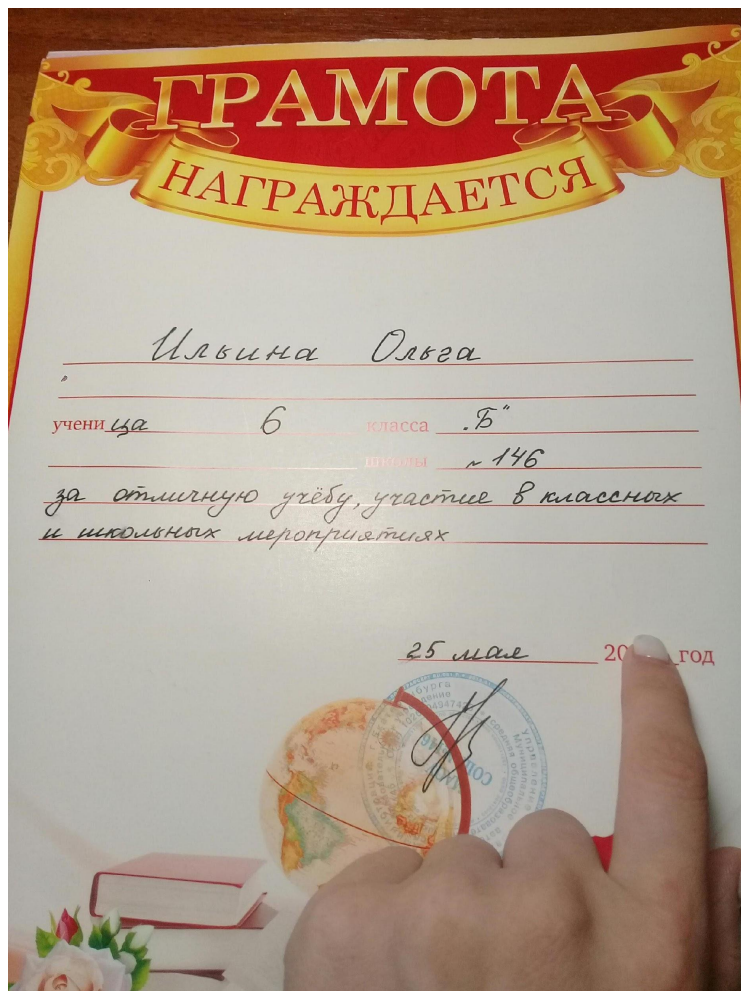 ГРАМОТА
НАГРАЖДАЕТСЯ
Ильина Ольга
учени ца 6 класса „Б"
школы №146
за отличную учёбу, участие в классных
и школьных мероприятиях
25 мая 20 год